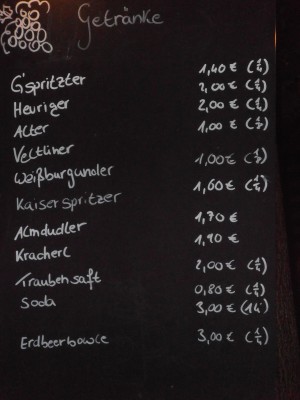 Getränke
G'spritzter 1,40 € (1/4)
Heuriger 2,00 € (1/4)
Alter 2,00 € (1/4)
Veltliner 1,00 € (1/8)
Weißburgunder 1,00 € (1/8)
Kaiserspritzer 1,60 € (1/4)
Almdudler 1,70 €
Kracherl 1,90 €
Traubensaft 2,00 € (1/4)
Soda 0,80 € (1/4)
3,00 €
Erdbeerbowle 3,00 € (1/4)